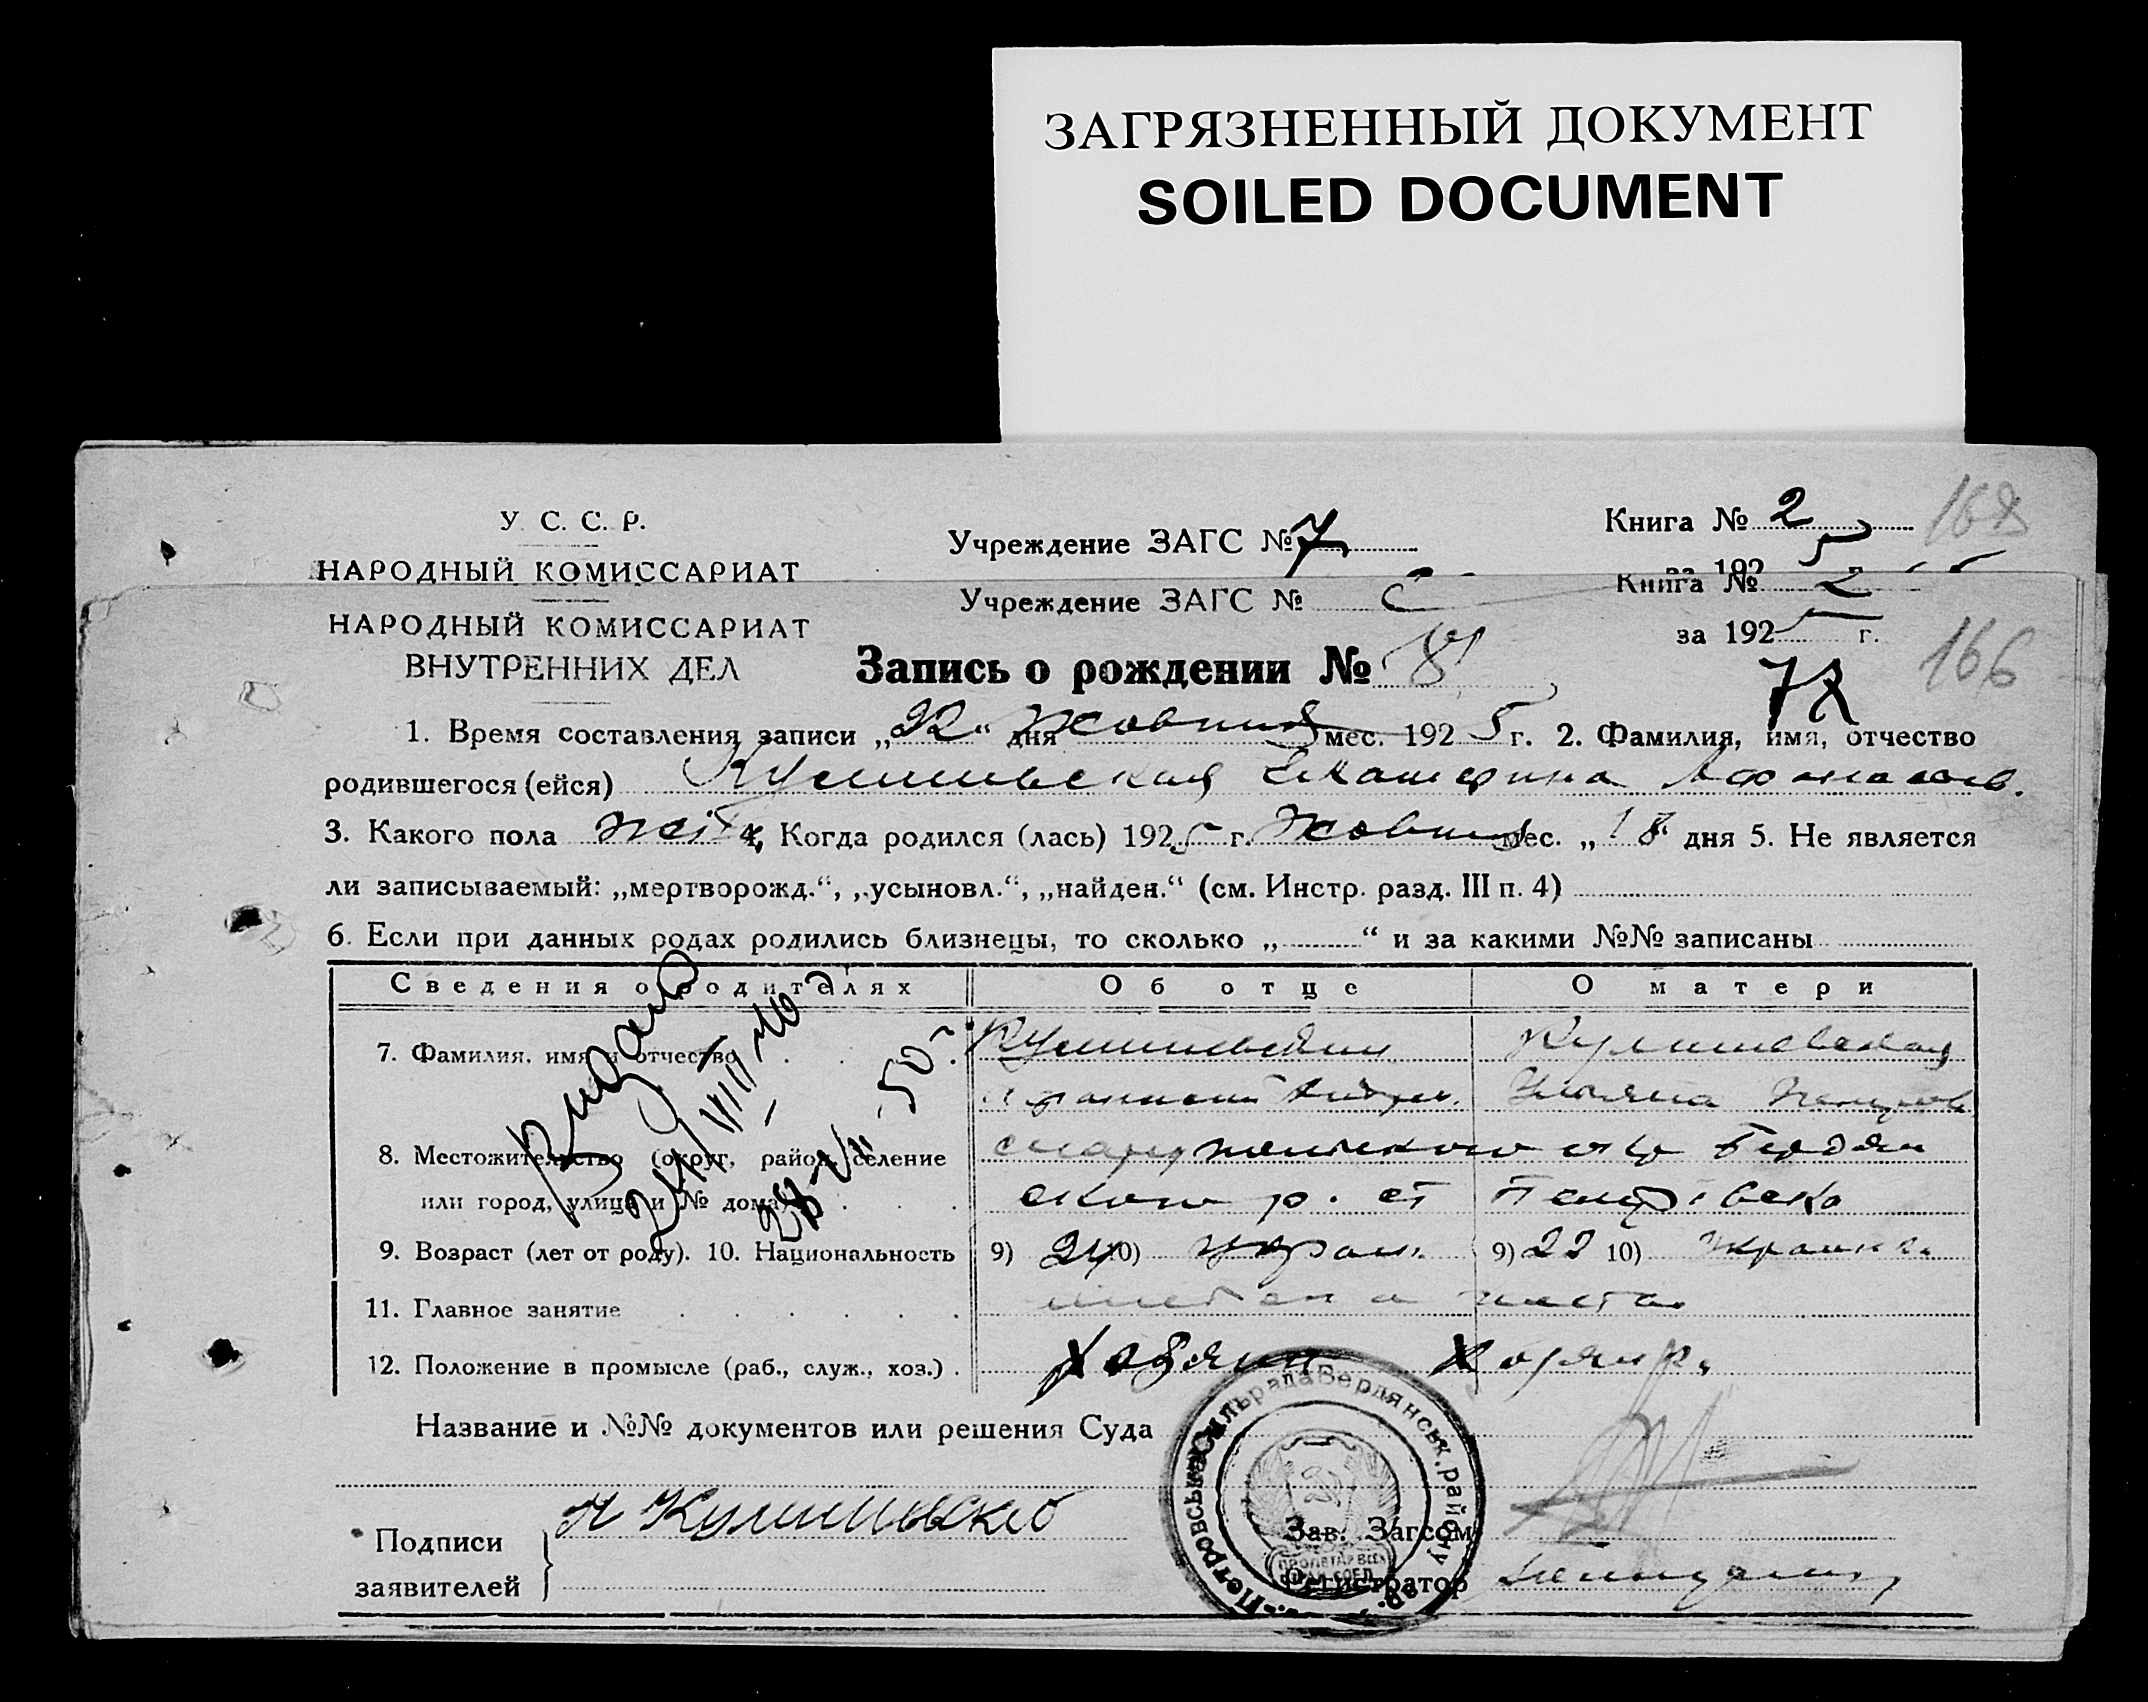 ЗАГРЯЗНЕННЫЙ ДОКУМЕНТ
SOILED DOCUMENT
У. С. С. Р.
НАРОДНЫЙ КОМИССАРИАТ
Учреждение ЗАГС № 7
Книга № 2
168
за 192 5
НАРОДНЫЙ КОМИССАРИАТ
ВНУТРЕННИХ ДЕЛ
Учреждение ЗАГС №
Книга № 2
за 1925 г.
166
72
Запись о рождении №
1. Время составления записи „22“ дня Жовтня мес. 1925 г. 2. Фамилия, имя, отчество
родившегося (ейся) Кулишовская Екатерина Афанасьев.
3. Какого пола жен 4. Когда родился (лась) 1925 г. Жовтня мес. „18“ дня 5. Не является
ли записываемый: „мертворожд.“, „усыновл.“, „найден.“ (см. Инстр. разд. III п. 4)
6. Если при данных родах родились близнецы, то сколько „ “ и за какими №№ записаны
Сведения о родителях Об отце О матери
7. Фамилия, имя и отчество Кулишовский Кулишовская
Афанасий Андре. Ульяна
8. Местожительство (округ, район, селение Мариупольского окр Бердян
или город, улица и № дома) ского р. с. Петровска
9. Возраст (лет от роду). 10. Национальность 9) 24 10) Украин. 9) 22 10) Украинка
11. Главное занятие
12. Положение в промысле (раб., служ., хоз.) Хозяин Хозяйка
Видано
24/VIII 40
28-VII-50
Название и №№ документов или решения Суда
Подписи
заявителей
А Кулишовский
Зав. Загсом
Регистратор
Петровська Сильрада Бердянськ. району
ПРОЛЕТАР ВСІХ